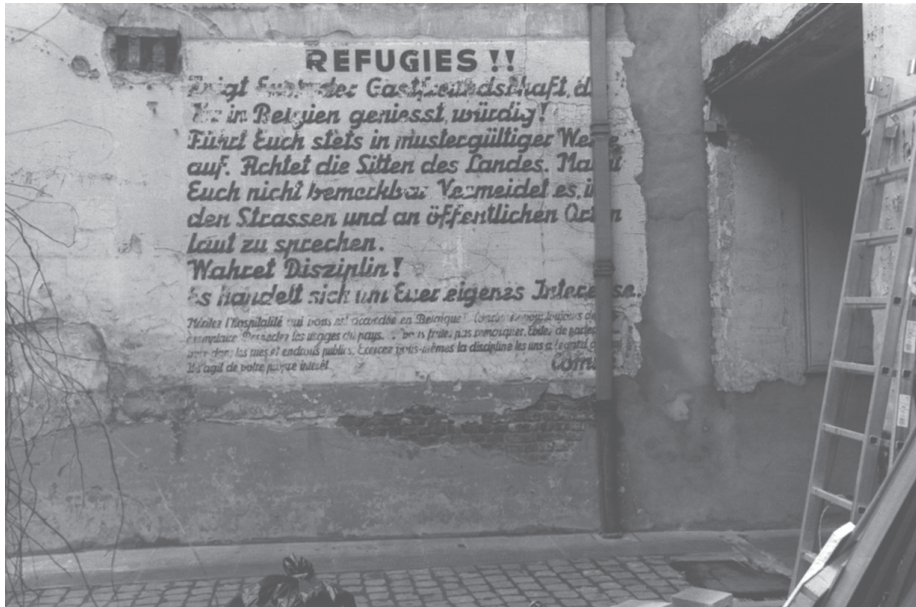 REFUGIES !!
Zeigt Euch der Gastfreundschaft, d
in Belgien geniesst, würdig!
Führt Euch stets in mustergültiger We
auf. Achtet die Sitten des Landes. Ma
Euch nicht bemerkbar Vermeidet es, i
den Strassen und an öffentlichen Orten
laut zu sprechen.
Wahret Disziplin!
Es handelt sich um Euer eigenes Interesse.
Méritez l'hospitalité qui vous est accordée en Belgique! toujours de
exemplaire. Respectez les usages du pays. faites pas remarquer. Evitez de parler
dans les rues et endroits publics. Exercez vous-mêmes la discipline les uns à
Il s'agit de votre propre intérêt.
Com